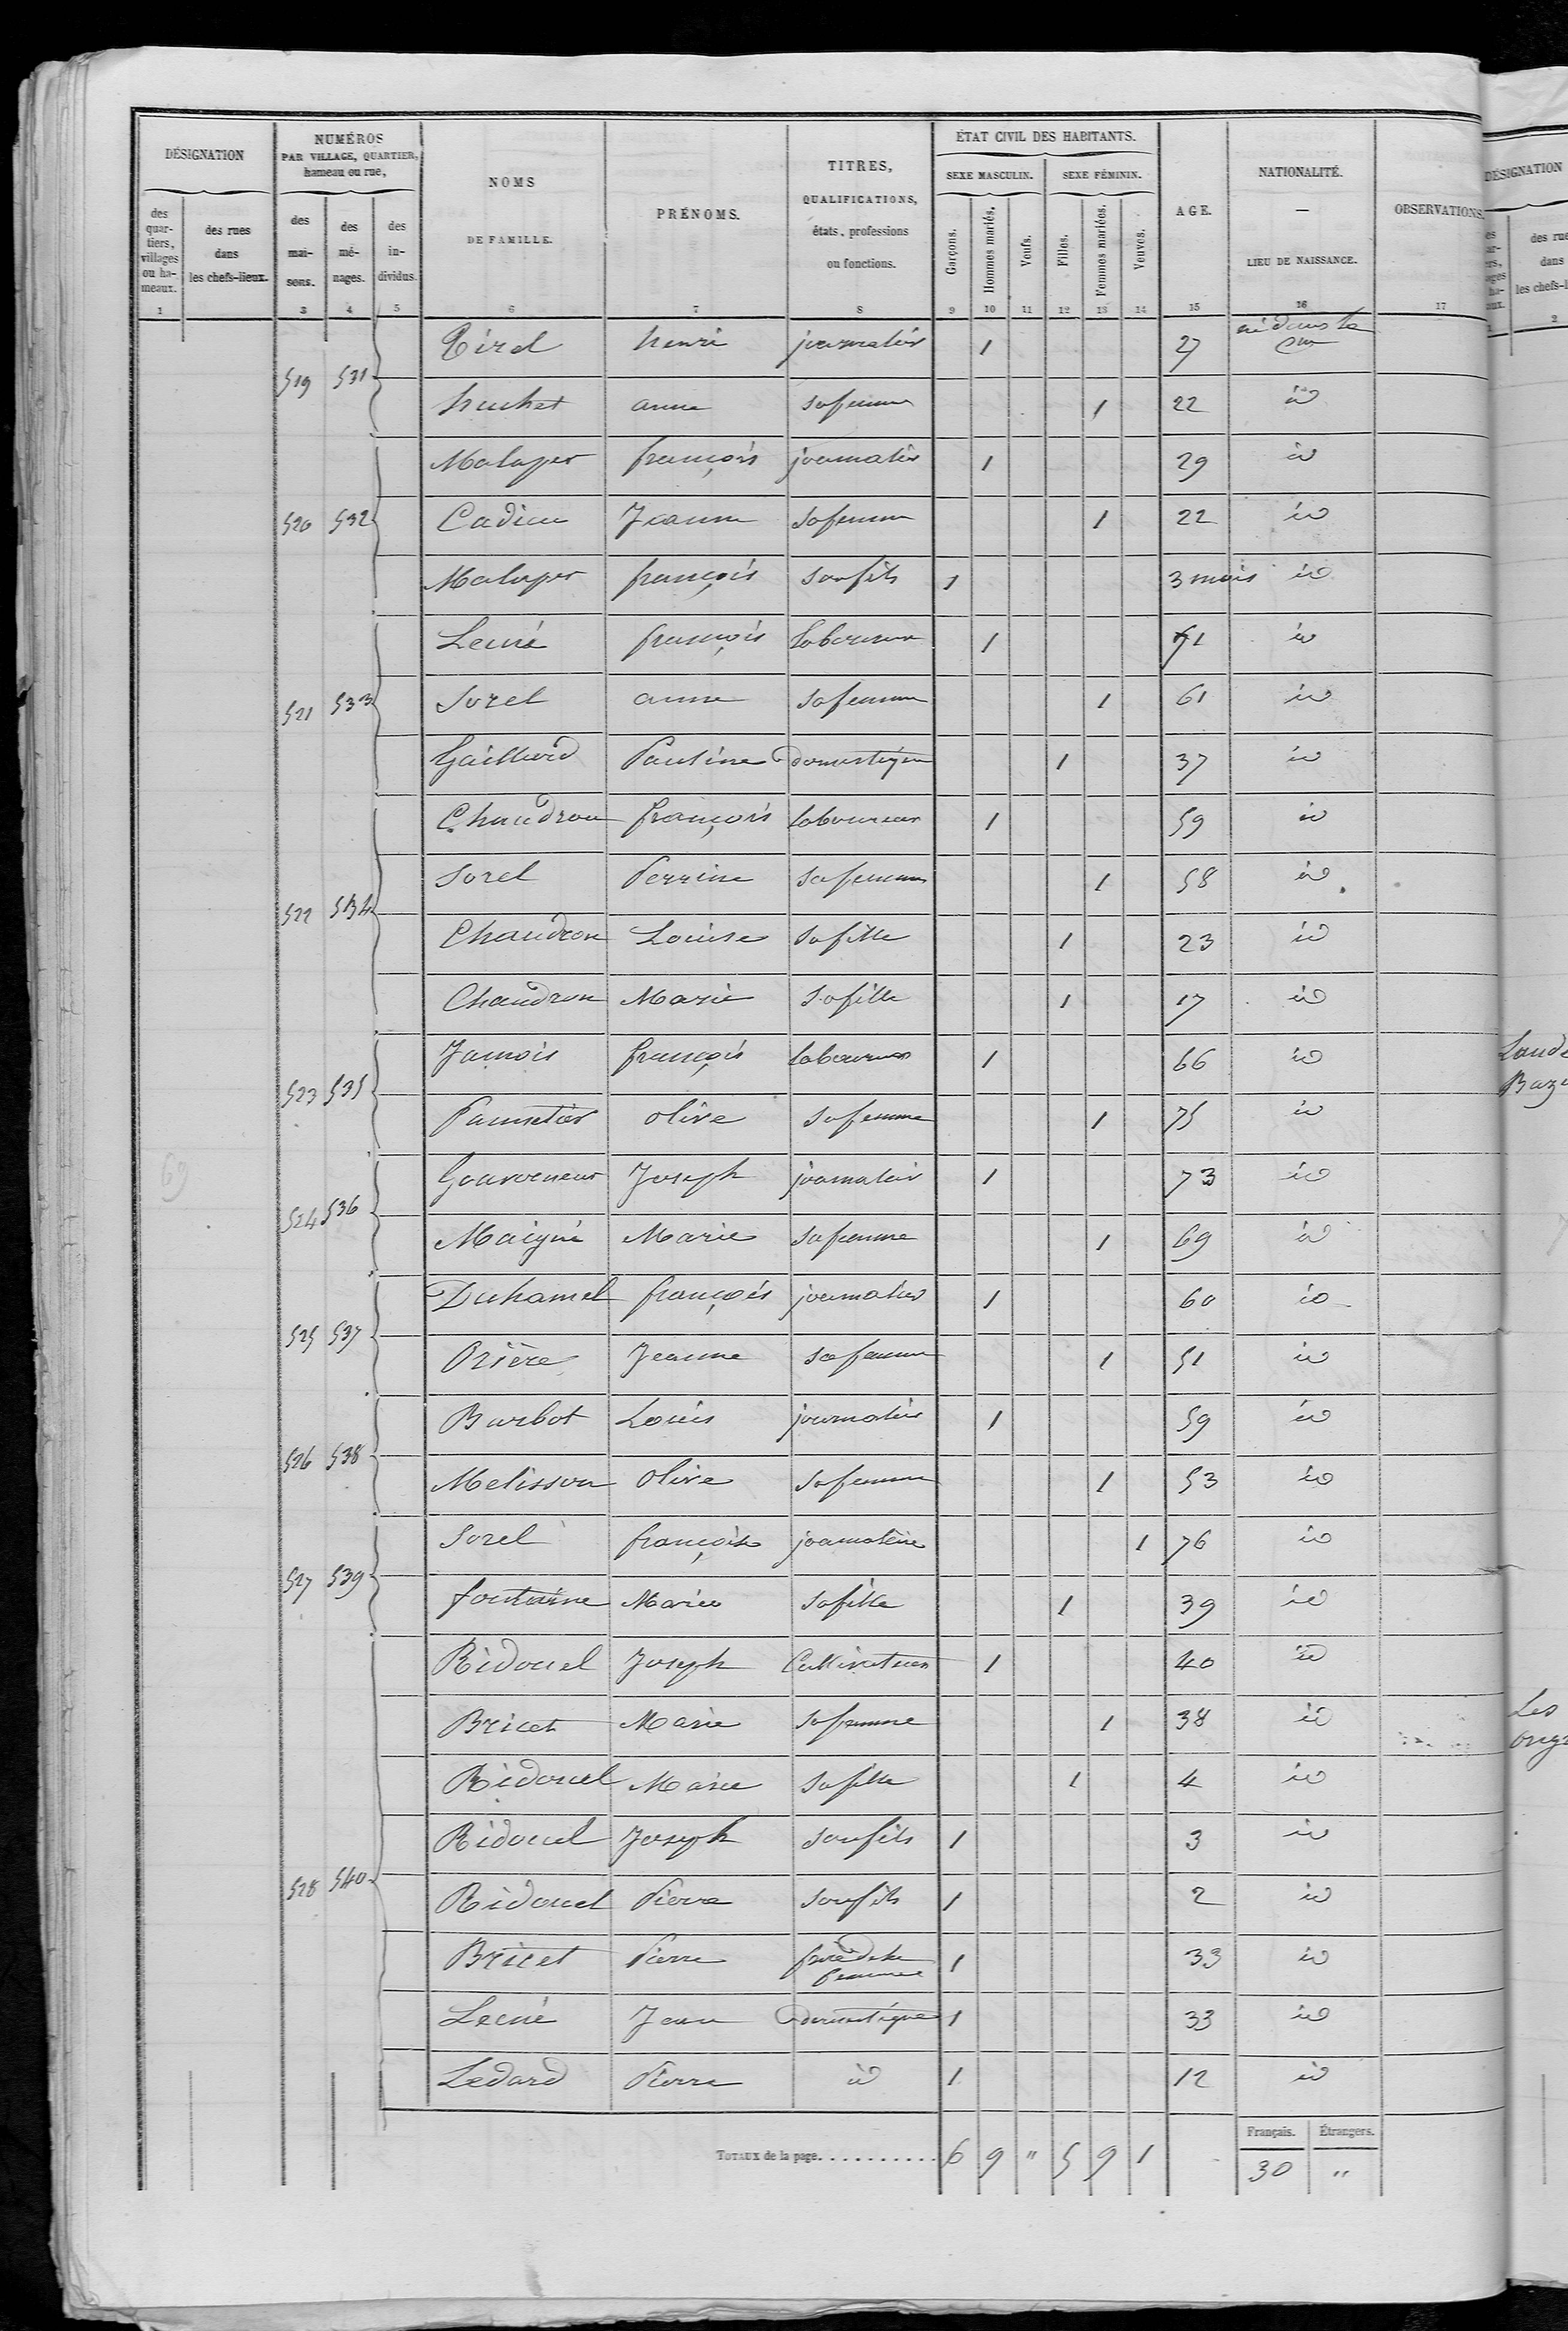 DÉSIGNATION
NUMÉROS
PAR VILLAGE, QUARTIER,
hameau ou rue,
NOMS
DE FAMILLE.
PRÉNOMS.
TITRES,
QUALIFICATIONS,
états, professions
ou fonctions.
ÉTAT CIVIL DES HABITANTS.
SEXE MASCULIN. SEXE FÉMININ.
AGE.
NATIONALITÉ.
—
LIEU DE NAISSANCE.
OBSERVATIONS.
des quar-tiers, villages ou ha-meaux.
des rues dans les chefs-lieux.
des mai-sons.
des mé-nages.
des in-dividus.
Garçons. Hommes mariés. Veufs. Filles. Femmes mariées. Veuves.
1 3 4 5 6 7 8 9 10 11 12 13 14 15 16 17
henri journalier 1 27 né dans la
519 531
anne sa femme 1 22 id
françois journalier 1 29 id
520 532 Cadieu Jeanne sa femme 1 22 id
françois son fils 1 3 mois id
Lecué françois laboureur 1 71 id
521 533 Sorel anne sa femme 1 61 id
Gaillard Pauline domestique 1 37 id
Chaudron françois laboureur 1 59 id
Sorel Perrine sa femme 1 58 id
522 534
Chaudron Louise sa fille 1 23 id
Chaudron Marie sa fille 1 17 id
Jamois françois laboureur 1 66 id
523 535
olive sa femme 1 75 id
69
Gouverneur Joseph journalier 1 73 id
524 536
Maigné Marie sa femme 1 69 id
Duhamel françois journalier 1 60 id
525 537
Orière Jeanne sa femme 1 51 id
Barbot Louis journalier 1 59 id
526 538
Melisson Olive sa femme 1 53 id
Sorel françoise journalière 1 76 id
527 539
fontaine Marie sa fille 1 39 id
Ridouel Joseph Cultivateur 1 40 id
Bricet Marie sa femme 1 38 id
Ridouel Marie sa fille 1 4 id
Ridouel Joseph son fils 1 3 id
528 540
Ridouel Pierre son fils 1 2 id
Bricet Pierre frère de la femme 1 33 id
Lecué Jean domestique 1 33 id
Ledard Pierre id 1 12 id
Français. Étrangers.
TOTAUX de la page........... 6 9 " 5 9 1 30 "
DÉSIGNATION
des rue
dans
les chefs-l
2
Lande
Les